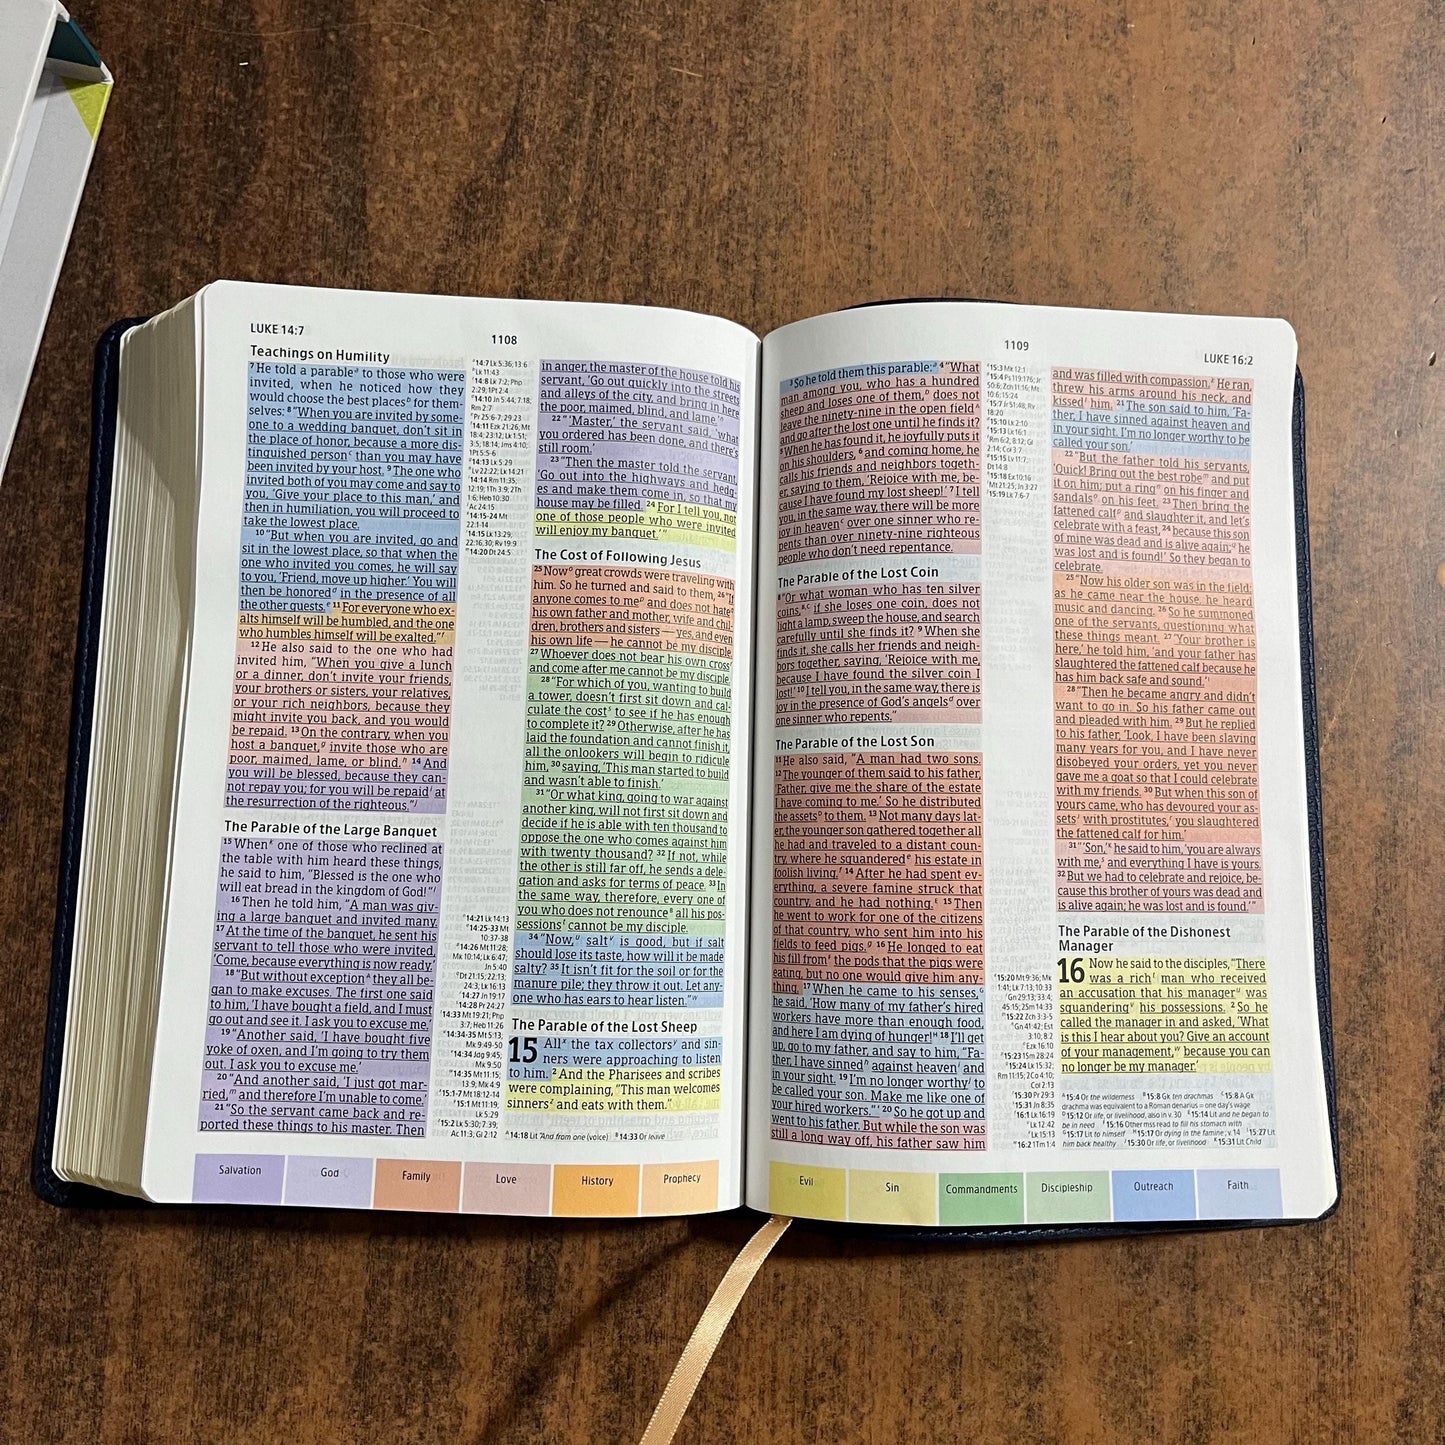 LUKE 14:7
1108
Teachings on Humility
7 He told a parable a to those who were
invited, when he noticed how they
would choose the best places b for them-
selves: 8 “When you are invited by some-
one to a wedding banquet, don’t sit in
the place of honor, because a more dis-
tinguished person c than you may have
been invited by your host. 9 The one who
invited both of you may come and say to
you, ‘Give your place to this man,’ and
then in humiliation, you will proceed to
take the lowest place.
10 “But when you are invited, go and
sit in the lowest place, so that when the
one who invited you comes, he will say
to you, ‘Friend, move up higher.’ You will
then be honored d in the presence of all
the other guests. e 11 For everyone who ex-
alts himself will be humbled, and the one
who humbles himself will be exalted.” f
12 He also said to the one who had
invited him, “When you give a lunch
or a dinner, don’t invite your friends,
your brothers or sisters, your relatives,
or your rich neighbors, because they
might invite you back, and you would
be repaid. 13 On the contrary, when you
host a banquet, g invite those who are
poor, maimed, lame, or blind. h 14 And
you will be blessed, because they can-
not repay you; for you will be repaid i at
the resurrection of the righteous.” j
The Parable of the Large Banquet
15 When k one of those who reclined at
the table with him heard these things,
he said to him, “Blessed is the one who
will eat bread in the kingdom of God!” l
16 Then he told him, “A man was giv-
ing a large banquet and invited many.
17 At the time of the banquet, he sent his
servant to tell those who were invited,
‘Come, because everything is now ready.’
18 “But without exception A they all be-
gan to make excuses. The first one said
to him, ‘I have bought a field, and I must
go out and see it. I ask you to excuse me.’
19 “Another said, ‘I have bought five
yoke of oxen, and I’m going to try them
out. I ask you to excuse me.’
20 “And another said, ‘I just got mar-
ried, m and therefore I’m unable to come.’
21 “So the servant came back and re-
ported these things to his master. Then
14:7 Lk 5:36; 13:6
Lk 11:43
14:8 Lk 7:2; Php
2:29; 1Pt 2:4
14:10 Jn 5:44; 7:18;
Rm 2:7
Pr 25:6-7; 29:23
14:11 Ezk 21:26; Mt
18:4; 23:12; Lk 1:51;
3:5; 18:14; Jms 4:10;
1Pt 5:5-6
14:13 Lk 5:29
Lv 22:22; Lk 14:21
14:14 Rm 11:35;
12:19; 1Th 3:9; 2Th
1:6; Heb 10:30
Ac 24:15
14:15-24 Mt
22:1-14
14:15 Lk 13:29;
22:16,30; Rv 19:9
14:20 Dt 24:5
14:21 Lk 14:13
14:25-33 Mt
10:37-38
14:26 Mt 11:28;
Mk 10:14; Lk 6:47;
Jn 5:40
Dt 21:15; 22:13;
24:3; Lk 16:13
14:27 Jn 19:17
14:28 Pr 24:27
14:33 Mt 19:21; Php
3:7; Heb 11:26
14:34-35 Mt 5:13;
Mk 9:49-50
14:34 Jdg 9:45;
Mk 9:50
14:35 Mt 11:15;
13:9; Mk 4:9
15:1-7 Mt 18:12-14
15:1 Mt 11:19;
Lk 5:29
15:2 Lk 5:30; 7:39;
Ac 11:3; Gl 2:12
in anger, the master of the house told his
servant, ‘Go out quickly into the streets
and alleys of the city, and bring in here
the poor, maimed, blind, and lame.’ n
22 “‘Master,’ the servant said, ‘what
you ordered has been done, and there’s
still room.’
23 “Then the master told the servant,
‘Go out into the highways and hedg-
es and make them come in, so that my
house may be filled. 24 For I tell you, not
one of those people who were invited
will enjoy my banquet.’”
The Cost of Following Jesus
25 Now o great crowds were traveling with
him. So he turned and said to them, 26 “If
anyone comes to me p and does not hate q
his own father and mother, wife and chil-
dren, brothers and sisters — yes, and even
his own life — he cannot be my disciple.
27 Whoever does not bear his own cross r
and come after me cannot be my disciple.
28 “For which of you, wanting to build
a tower, doesn’t first sit down and cal-
culate the cost s to see if he has enough
to complete it? 29 Otherwise, after he has
laid the foundation and cannot finish it,
all the onlookers will begin to ridicule
him, 30 saying, ‘This man started to build
and wasn’t able to finish.’
31 “Or what king, going to war against
another king, will not first sit down and
decide if he is able with ten thousand to
oppose the one who comes against him
with twenty thousand? 32 If not, while
the other is still far off, he sends a dele-
gation and asks for terms of peace. 33 In
the same way, therefore, every one of
you who does not renounce B all his pos-
sessions t cannot be my disciple.
34 “Now, u salt v is good, but if salt
should lose its taste, how will it be made
salty? 35 It isn’t fit for the soil or for the
manure pile; they throw it out. Let any-
one who has ears to hear listen.” w
The Parable of the Lost Sheep
15 All x the tax collectors y and sin-
ners were approaching to listen
to him. 2 And the Pharisees and scribes
were complaining, “This man welcomes
sinners z and eats with them.”
A 14:18 Lit “And from one (voice) B 14:33 Or leave
Salvation God Family Love History Prophecy
1109
LUKE 16:2
3 So he told them this parable: a 4 “What
man among you, who has a hundred
sheep and loses one of them, b does not
leave the ninety-nine in the open field A
and go after the lost one until he finds it?
5 When he has found it, he joyfully puts it
on his shoulders, 6 and coming home, he
calls his friends and neighbors togeth-
er, saying to them, ‘Rejoice with me, be-
cause I have found my lost sheep!’ 7 I tell
you, in the same way, there will be more
joy in heaven c over one sinner who re-
pents than over ninety-nine righteous
people who don’t need repentance.
The Parable of the Lost Coin
8 “Or what woman who has ten silver
coins, B,C if she loses one coin, does not
light a lamp, sweep the house, and search
carefully until she finds it? 9 When she
finds it, she calls her friends and neigh-
bors together, saying, ‘Rejoice with me,
because I have found the silver coin I
lost!’ 10 I tell you, in the same way, there is
joy in the presence of God’s angels d over
one sinner who repents.”
The Parable of the Lost Son
11 He also said, “A man had two sons.
12 The younger of them said to his father,
‘Father, give me the share of the estate
I have coming to me.’ So he distributed
the assets D to them. 13 Not many days lat-
er, the younger son gathered together all
he had and traveled to a distant coun-
try, where he squandered e his estate in
foolish living. f 14 After he had spent ev-
erything, a severe famine struck that
country, and he had nothing. E 15 Then
he went to work for one of the citizens
of that country, who sent him into his
fields to feed pigs. g 16 He longed to eat
his fill from F the pods that the pigs were
eating, but no one would give him any-
thing. 17 When he came to his senses, G
he said, ‘How many of my father’s hired
workers have more than enough food,
and here I am dying of hunger! H 18 I’ll get
up, go to my father, and say to him, “Fa-
ther, I have sinned h against heaven i and
in your sight. 19 I’m no longer worthy j to
be called your son. Make me like one of
your hired workers.”’ 20 So he got up and
went to his father. But while the son was
still a long way off, his father saw him
15:3 Mk 12:1
15:4 Ps 119:176; Jr
50:6; Ezk 11:16; Mt
10:6; 15:24
15:7 Jr 51:48; Rv
18:20
15:10 Lk 2:10
15:13 Lk 16:1
Rm 6:2; 8:12; Gl
2:14; Col 3:7
15:15 Lv 11:7;
Dt 14:8
15:18 Ex 10:16
Mt 21:25; Jn 3:27
15:19 Lk 7:6-7
15:20 Mt 9:36; Mk
1:41; Lk 7:13; 10:33
Gn 29:13; 33:4;
45:15; 2Sm 14:33
15:22 Zch 3:3-5
Gn 41:42; Est
3:10; 8:2
Ezk 16:10
15:23 1Sm 28:24
15:24 Lk 15:32;
Rm 11:15; 2Co 4:10;
Col 2:13
15:30 Pr 29:3
15:31 Jn 8:35
16:1 Lk 16:19
Lk 12:42
Lk 15:13
16:2 1Tm 1:4
and was filled with compassion. k He ran,
threw his arms around his neck, and
kissed l him. 21 The son said to him, ‘Fa-
ther, I have sinned against heaven and
in your sight. I’m no longer worthy to be
called your son.’
22 “But the father told his servants,
‘Quick! Bring out the best robe m and put
it on him; put a ring n on his finger and
sandals o on his feet. 23 Then bring the
fattened calf p and slaughter it, and let’s
celebrate with a feast, 24 because this son
of mine was dead and is alive again; q he
was lost and is found!’ So they began to
celebrate.
25 “Now his older son was in the field;
as he came near the house, he heard
music and dancing. 26 So he summoned
one of the servants, questioning what
these things meant. 27 ‘Your brother is
here,’ he told him, ‘and your father has
slaughtered the fattened calf because he
has him back safe and sound.’ I
28 “Then he became angry and didn’t
want to go in. So his father came out
and pleaded with him. 29 But he replied
to his father, ‘Look, I have been slaving
many years for you, and I have never
disobeyed your orders, yet you never
gave me a goat so that I could celebrate
with my friends. 30 But when this son of
yours came, who has devoured your as-
sets J with prostitutes, r you slaughtered
the fattened calf for him.’
31 “‘Son,’ K he said to him, ‘you are always
with me, s and everything I have is yours.
32 But we had to celebrate and rejoice, be-
cause this brother of yours was dead and
is alive again; he was lost and is found.’”
The Parable of the Dishonest
Manager
16 Now he said to the disciples, “There
was a rich t man who received
an accusation that his manager u was
squandering v his possessions. 2 So he
called the manager in and asked, ‘What
is this I hear about you? Give an account
of your management, w because you can
no longer be my manager.’
A 15:4 Or the wilderness B 15:8 Gk ten drachmas C 15:8 A Gk
drachma was equivalent to a Roman denarius = one day’s wage
D 15:12 Or life, or livelihood, also in v. 30 E 15:14 Lit and he began to
be in need F 15:16 Other mss read to fill his stomach with
G 15:17 Lit to himself H 15:17 Or dying in the famine; v. 14 I 15:27 Lit
him back healthy J 15:30 Or life, or livelihood K 15:31 Lit Child
Evil Sin Commandments Discipleship Outreach Faith